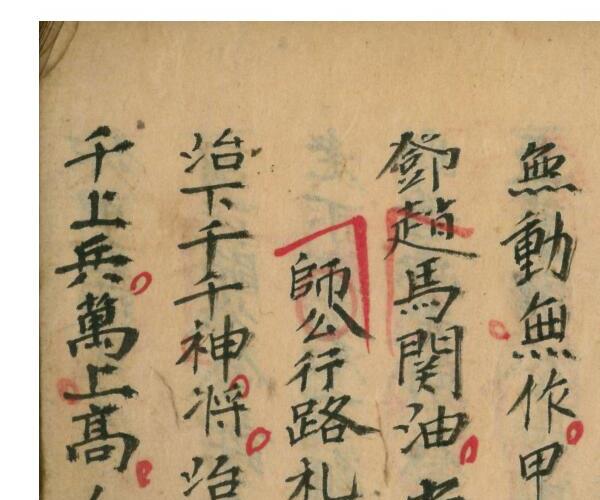 無動無作甲
鄧趙馬関油
師公行路札
治下千千神将治
千上兵萬上高